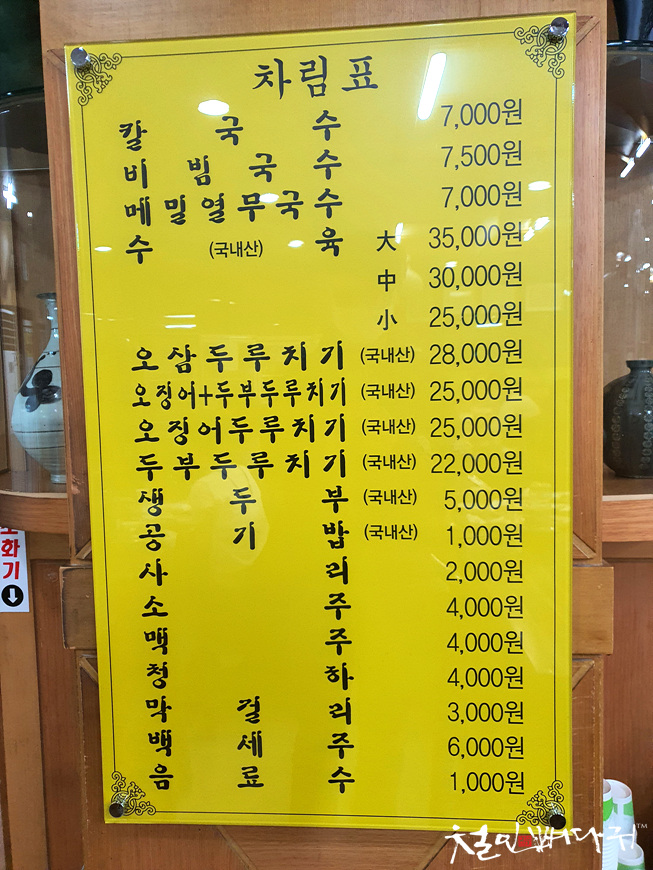 차림표
칼국수 7,000원
비빔국수 7,500원
메밀열무국수 7,000원
수육 (국내산) 大 35,000원
中 30,000원
小 25,000원
오삼두루치기 (국내산) 28,000원
오징어+두부두루치기 (국내산) 25,000원
오징어두루치기 (국내산) 25,000원
두부두루치기 (국내산) 22,000원
생두부 (국내산) 5,000원
공기밥 (국내산) 1,000원
사리 2,000원
소주 4,000원
맥주 4,000원
청하 4,000원
막걸리 3,000원
백세주 6,000원
음료수 1,000원
화
기
철인뼈다귀™